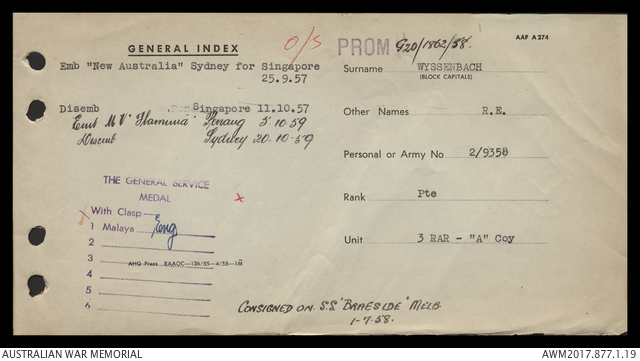 AAF A 274
GENERAL INDEX
O/S
PROM G20/1862/58.
Emb "New Australia" Sydney for Singapore
25.9.57
Surname WYSSENBACH
(BLOCK CAPITALS)
Disemb Singapore 11.10.57
Emb M.V. 'Flaminia' Penang 5.10.59
Disemb Sydney 20.10.59
Other Names R.E.
Personal or Army No 2/9358
Rank Pte
Unit 3 RAR - "A" Coy
THE GENERAL SERVICE
MEDAL
With Clasp
1 Malaya Eng
2
3
AHQ Press RAAOC—136/55—4/55—1M
4
5
6
CONSIGNED ON S.S 'BRAESIDE' MELB
1-7-58.
AUSTRALIAN WAR MEMORIAL
AWM2017.877.1.19